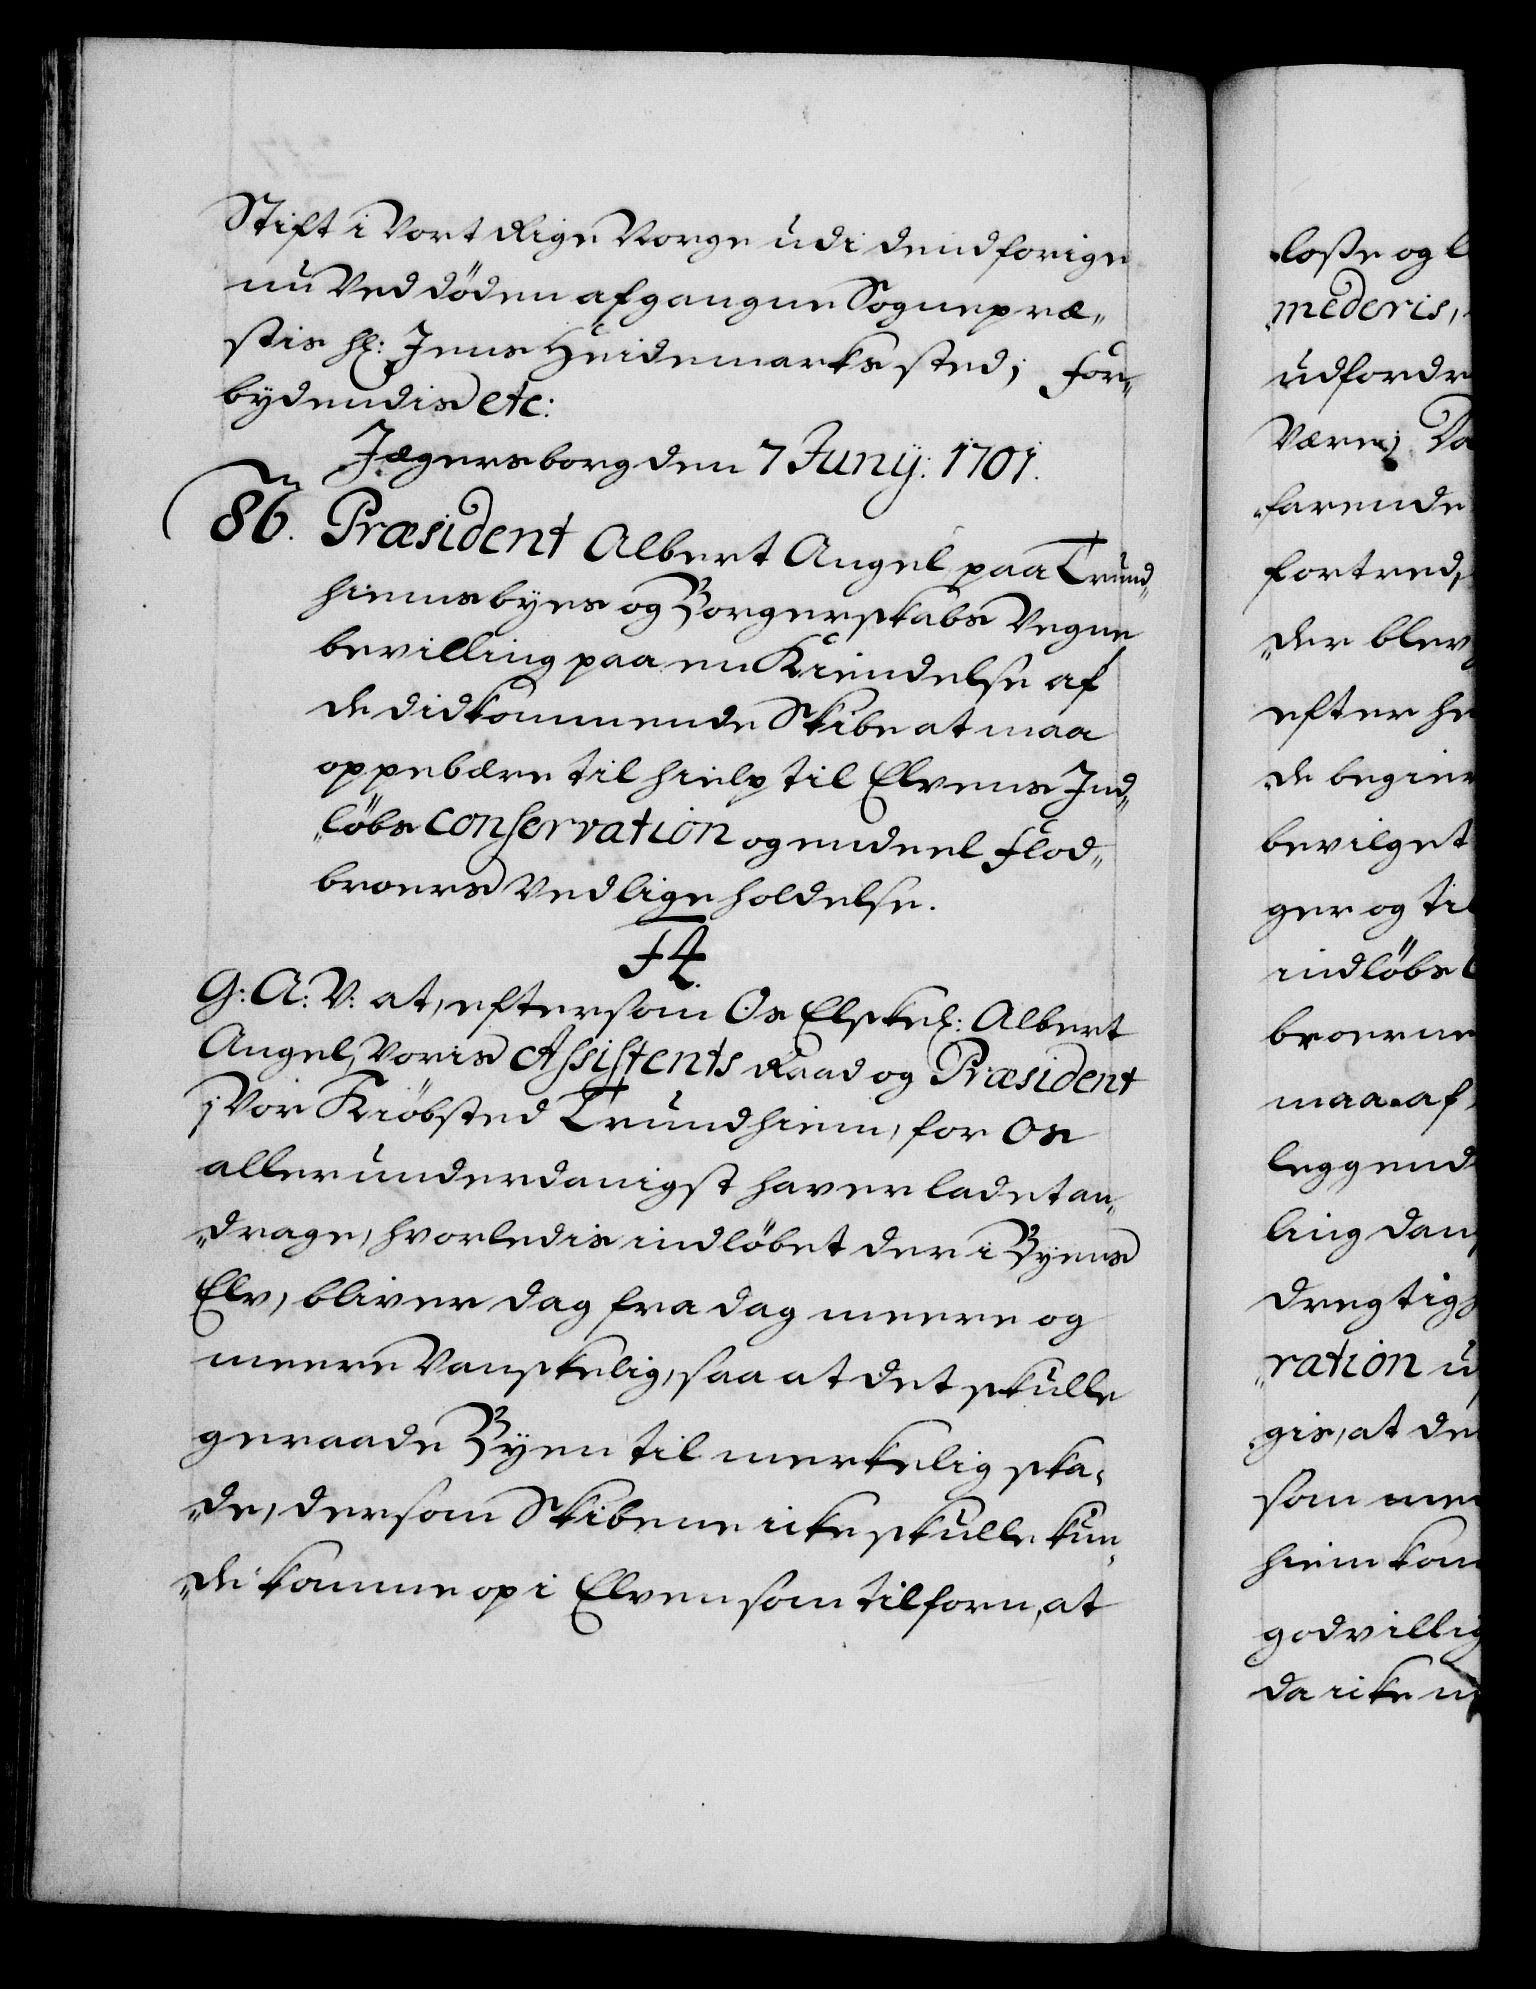 Stift i Vort Rige Norge udi dend forige
nu Ved döden afgangne Sognepræ„
stis hl: Jens Heidemarks sted; For„
bydendis etc:
Jægersborg den 7 Junÿ: 1701.
86. Præsident Albert Angel paa Trund„
hiems byes og Borgerskabs Vegne
bevilling paa en Kiendelse af
de didkommende Skibe at maa
oppebære til hielp til Elvens Ind„
„löbs Conservation og endeel Flod„
broers Vedligeholdelse.
F4
G: A: V: at, eftersom Os Elskel: Albert
Angel, Voris Assistents Raad og Præsident
j Vor Kiöbsted Trundhiem, for Os
allerunderdanigst haver ladet an„
„drage, hvorledis indlöbet der i Byens
Elv, bliver dag fra dag meere og
meere Vanskelig, saa at det skulle
geraade Byen til merkelig ska„
„de, dersom Skibene icke skulle kun„
„de komme op i Elven som tilforn, at
losse og l
mederis,
udfordr
Være; Da
farende
fortred,
„der blev
efter he
de begier
bevilget
ger og til
indlöbs C
broerne
maa af
leggend
ling dan
dregtig
„ration u
gis, at de
som me
hiem kom
godvillig
da icke u